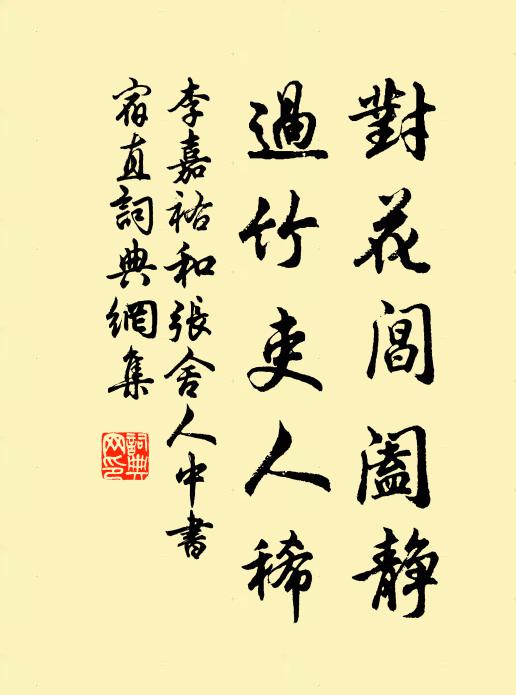 對花閶闔静
過竹吏人稀
李嘉祐和張舍人中書
宿直詞典網集
詞典网印